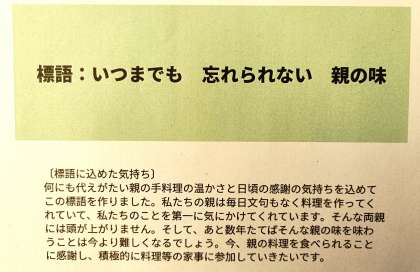 標語：いつまでも　忘れられない　親の味
〔標語に込めた気持ち〕
何にも代えがたい親の手料理の温かさと日頃の感謝の気持ちを込めて
この標語を作りました。私たちの親は毎日文句もなく料理を作ってく
れていて、私たちのことを第一に気にかけてくれています。そんな両親
には頭が上がりません。そして、あと数年たてばそんな親の味を味わ
うことは今より難しくなるでしょう。今、親の料理を食べられること
に感謝し、積極的に料理等の家事に参加していきたいです。